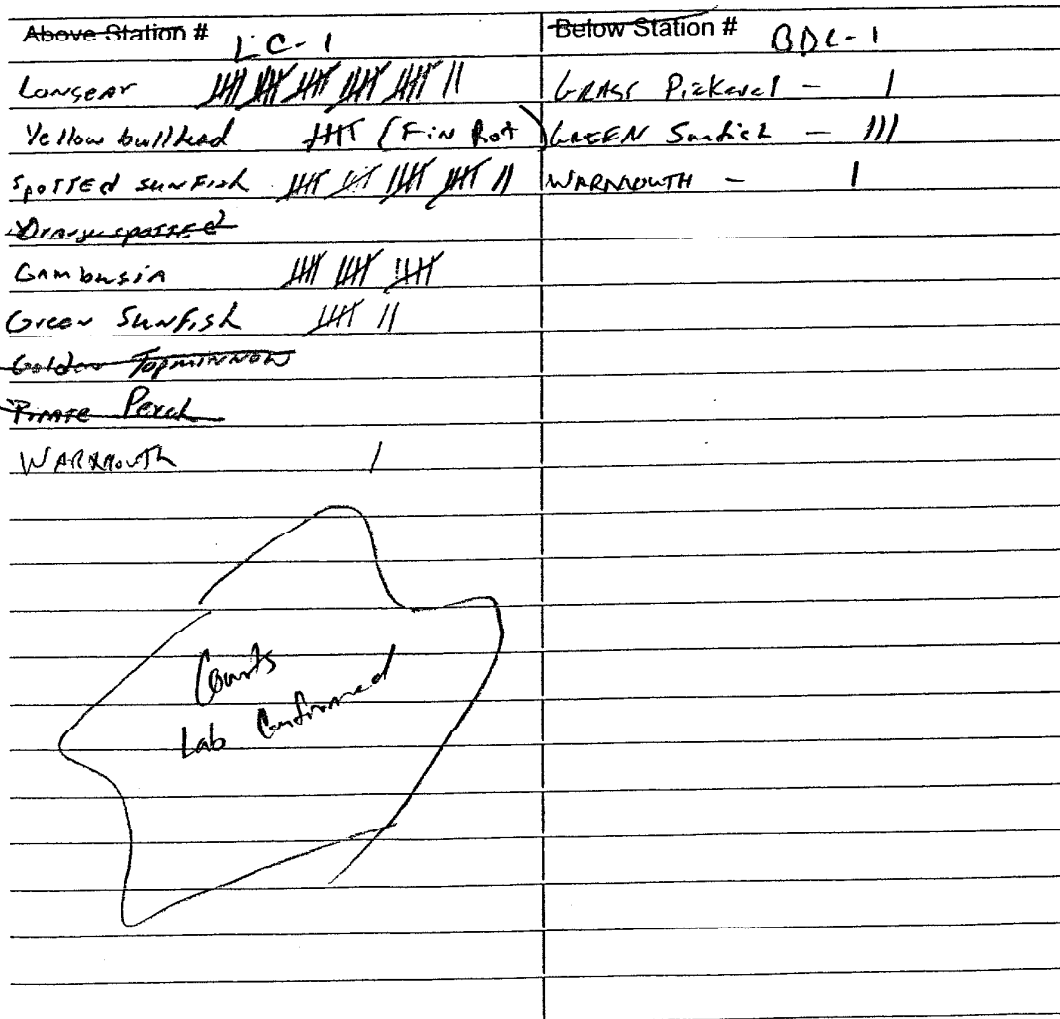 Above Station # LC-1
Longear 𝍸 𝍸 𝍸 𝍸 𝍸 II
Yellow bullhead 𝍸 (Fin Rot)
Spotted sunfish 𝍸 𝍸 𝍸 𝍸 II
Orangespotted
Gambusia 𝍸 𝍸 𝍸
Green Sunfish 𝍸 II
Golden Topminnow
Pirate Perch
Warmouth I
Counts
Lab Confirmed
Below Station # BDC-1
Grass Pickerel - I
GREEN Sunfish - III
WARMOUTH - I